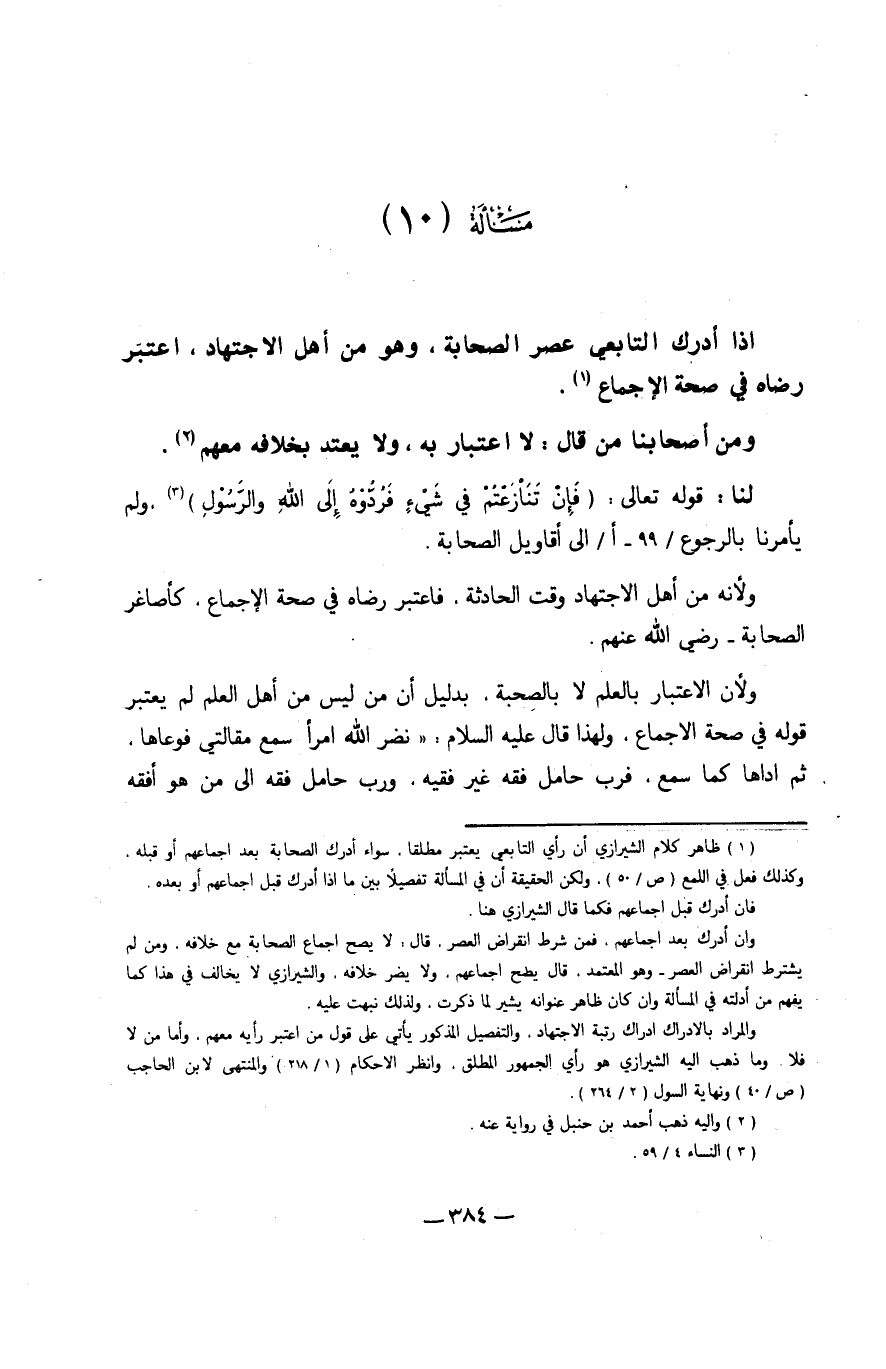 مسألة (١٠)
اذا أدرك التابعي عصر الصحابة ، وهو من أهل الاجتهاد ، اعتبَر
رضاه في صحة الإجماع (١) .
ومن أصحابنا من قال : لا اعتبار به ، ولا يعتد بخلافه معهم (٢) .
لنا : قوله تعالى : ( فَإِنْ تَنَازَعْتُمْ فِي شَيْءٍ فَرُدُّوْهُ إِلَى اللهِ والرَّسُوْلِ ) (٣) ، ولم
يأمرنا بالرجوع / ٩٩ ـ أ / الى أقاويل الصحابة .
ولأنه من أهل الاجتهاد وقت الحادثة ، فاعتبر رضاه في صحة الإجماع ، كأصاغر
الصحابة ـ رضي الله عنهم .
ولأن الاعتبار بالعلم لا بالصحبة ، بدليل أن من ليس من أهل العلم لم يعتبر
قوله في صحة الاجماع ، ولهذا قال عليه السلام : « نضر الله امرأ سمع مقالتي فوعاها ،
ثم اداها كما سمع ، فرب حامل فقه غير فقيه ، ورب حامل فقه الى من هو أفقه
( ١ ) ظاهر كلام الشيرازي أن رأي التابعي يعتبر مطلقا ، سواء أدرك الصحابة بعد اجماعهم أو قبله ،
وكذلك فعل في اللمع ( ص / ٥٠ ) ، ولكن الحقيقة أن في المسألة تفصيلاً بين ما اذا أدرك قبل اجماعهم أو بعده .
فان أدرك قبل اجماعهم فكما قال الشيرازي هنا .
وان أدرك بعد اجماعهم ، فمن شرط انقراض العصر ، قال : لا يصح اجماع الصحابة مع خلافه ، ومن لم
يشترط انقراض العصر ـ وهو المعتمد ، قال يصح اجماعهم ، ولا يضر خلافه ، والشيرازي لا يخالف في هذا كما
يفهم من أدلته في المسألة وان كان ظاهر عنوانه يشير لما ذكرت ، ولذلك نبهت عليه .
والمراد بالادراك ادراك رتبة الاجتهاد ، والتفصيل المذكور يأتي على قول من اعتبر رأيه معهم ، وأما من لا
فلا . وما ذهب اليه الشيرازي هو رأي الجمهور المطلق ، وانظر الاحكام ( ١ / ٢١٨ ) والمنتهى لابن الحاجب
( ص / ٤٠ ) ونهاية السول ( ٢ / ٢٦٤ ) .
( ٢ ) واليه ذهب أحمد بن حنبل في رواية عنه .
( ٣ ) النساء ٤ / ٥٩ .
— ٣٨٤ —